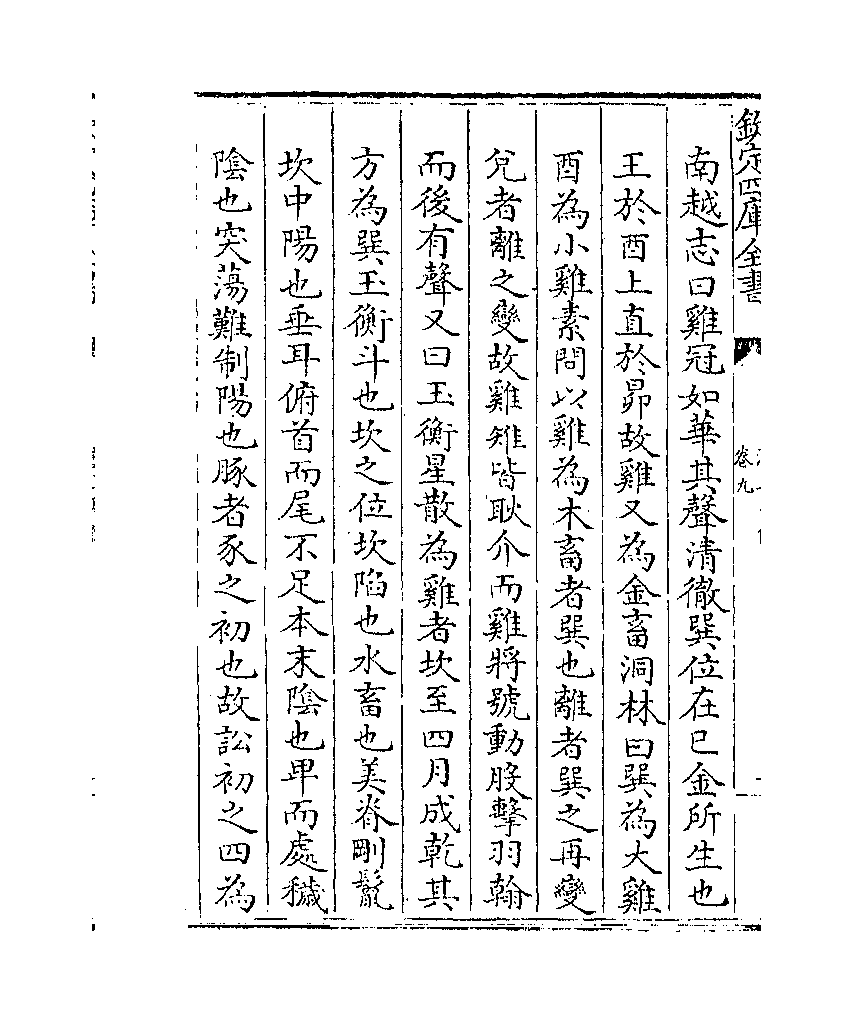 欽定四庫全書
卷九
南越志曰雞冠如華其聲清徹巽位在巳金所生也
王於酉上直於昴故雞又為金畜洞林曰巽為大雞
酉為小雞素問以雞為木畜者巽也離者巽之再變
兌者離之變故雞雉皆耿介而雞將號動股擊羽翰
而後有聲又曰玉衡星散為雞者坎至四月成乾其
方為巽玉衡斗也坎之位坎陷也水畜也美脊剛鬛
坎中陽也垂耳俯首而尾不足本末陰也卑而處穢
陰也突蕩難制陽也豚者豕之初也故訟初之四為